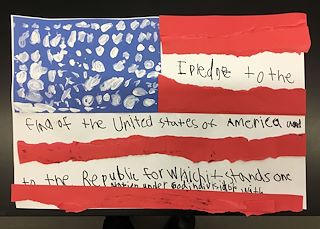 I pledge to the
flag of the United states of America and
to the Republic for which it stands one
Nation under God indivisible with